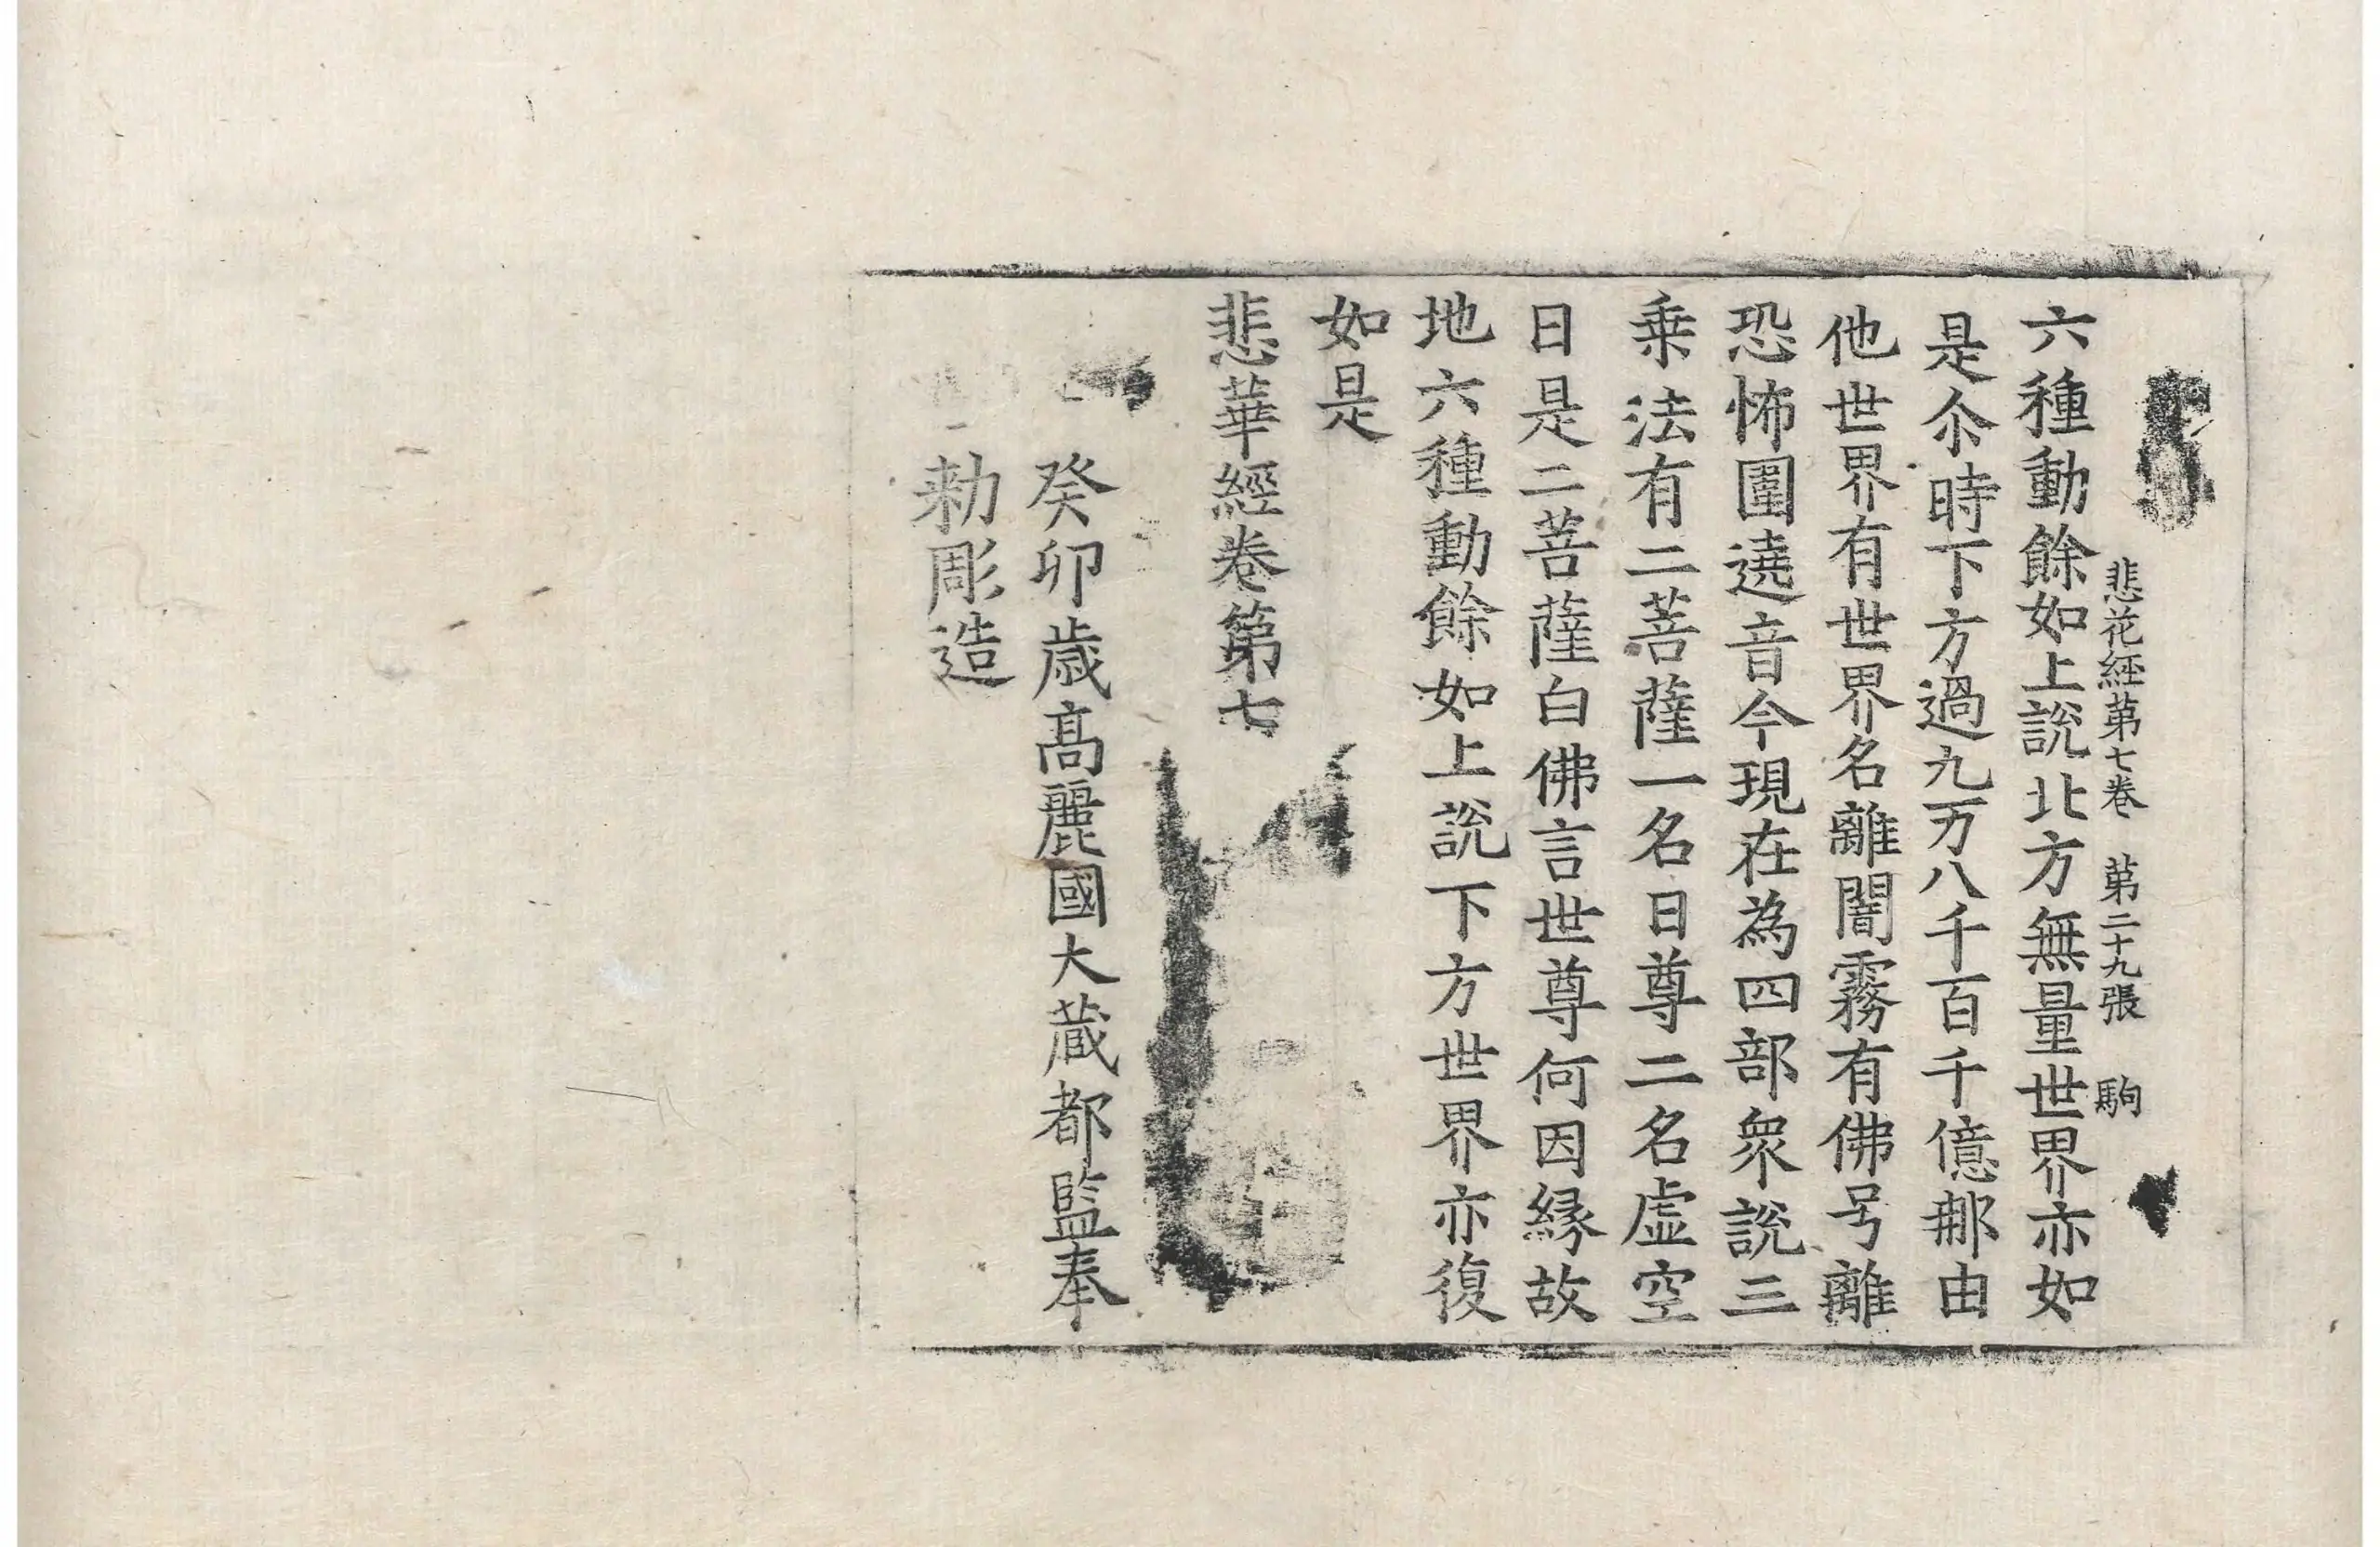 悲花經第七卷　第二十九張　駒
六種動餘如上說北方無量世界亦如
是尒時下方過九万八千百千億那由
他世界有世界名離闇霧有佛号離
恐怖圍遶音今現在為四部衆說三
乗法有二菩薩一名日尊二名虛空
日是二菩薩白佛言世尊何因縁故
地六種動餘如上說下方世界亦復
如是
悲華經卷第七
癸卯歳高麗國大蔵都監奉
勅彫造